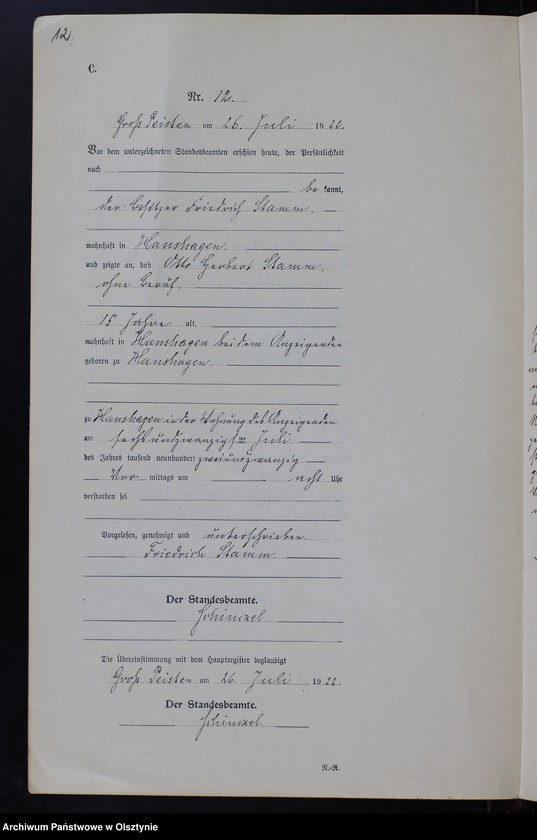 12.
C.
Nr. 12.
Groß Peisten am 26. Juli 1922.
Vor dem unterzeichneten Standesbeamten erschien heute, der Persönlichkeit
nach
be kannt,
der Besitzer Friedrich Stamm,
wohnhaft in Hanshagen.
und zeigte an, daß Otto Herbert Stamm,
ohne Beruf,
15 Jahre alt,
wohnhaft in Hanshagen bei dem Anzeigenden
geboren zu Hanshagen,
zu Hanshagen in der Wohnung des Anzeigenden
am sechsundzwanzigsten Juli
des Jahres tausend neunhundert zweiundzwanzig
Vor mittags um acht Uhr
verstorben sei
Vorgelesen, genehmigt und unterschrieben
Friedrich Stamm
Der Standesbeamte.
Schinkel
Die Übereinstimmung mit dem Hauptregister beglaubigt
Groß Peisten am 26. Juli 1922.
Der Standesbeamte.
Schinkel
N.-R.
Archiwum Państwowe w Olsztynie